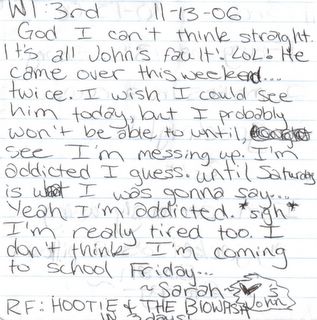 W1: 3rd 11-13-06
God I can't think straight.
It's all John's fault! LoL! He
came over this weekend...
twice. I wish I could see
him today, but I probably
won't be able to until,
see I'm messing up. I'm
addicted I guess. until Saturday
is what I was gonna say...
Yeah I'm addicted. *sigh*
I'm really tired too. I
don't think I'm coming
to school Friday...
~Sarah
John
RF: HOOTIE & THE BLOWFISH
IN 2 days!